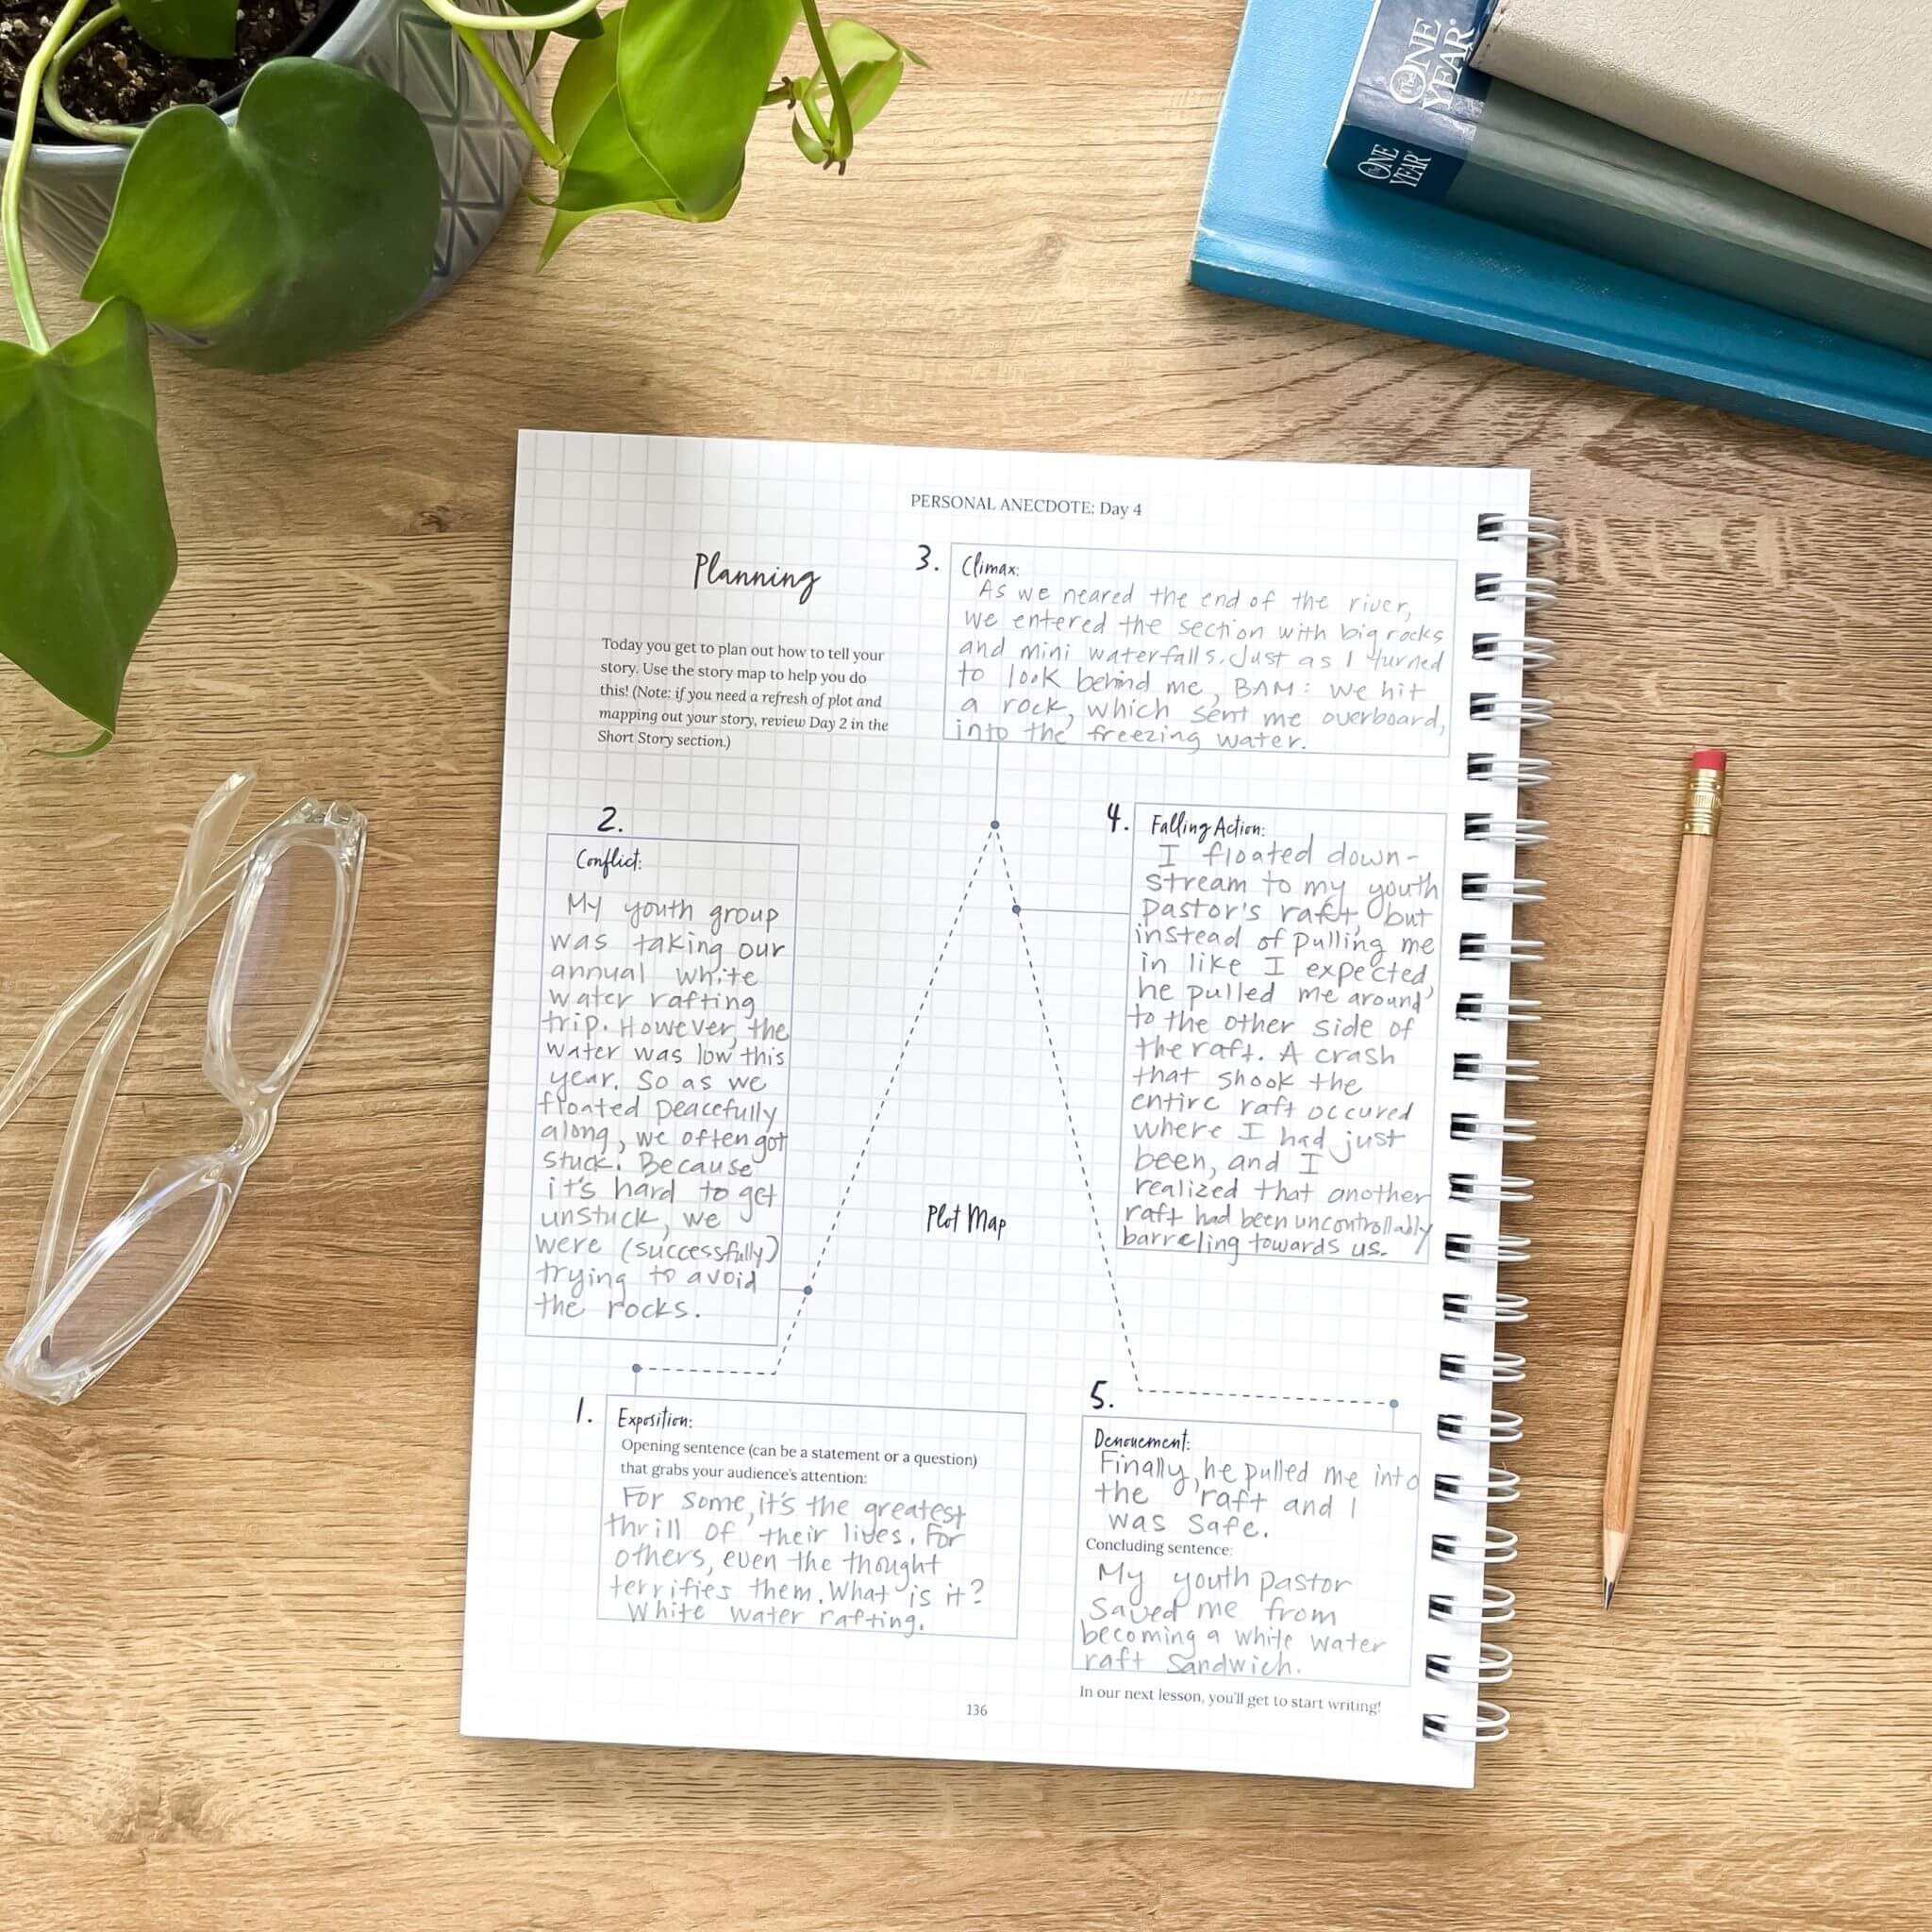 The ONE YEAR®
The ONE YEAR®
PERSONAL ANECDOTE: Day 4
Planning
Today you get to plan out how to tell your
story. Use the story map to help you do
this! (Note: if you need a refresh of plot and
mapping out your story, review Day 2 in the
Short Story section.)
3.
Climax:
As we neared the end of the river,
we entered the section with big rocks
and mini waterfalls. Just as I turned
to look behind me, BAM: we hit
a rock, which sent me overboard,
into the freezing water.
2.
Conflict:
My youth group
was taking our
annual white
water rafting
trip. However, the
water was low this
year. So as we
floated peacefully
along, we often got
stuck. Because
it's hard to get
unstuck, we
were (successfully)
trying to avoid
the rocks.
4.
Falling Action:
I floated down-
stream to my youth
pastor's raft, but
instead of pulling me
in like I expected,
he pulled me around
to the other side of
the raft. A crash
that shook the
entire raft occured
where I had just
been, and I
realized that another
raft had been uncontrollably
barreling towards us.
Plot Map
1.
Exposition:
Opening sentence (can be a statement or a question)
that grabs your audience's attention:
For some, it's the greatest
thrill of their lives. For
others, even the thought
terrifies them. What is it?
White water rafting.
5.
Denouement:
Finally, he pulled me into
the raft and I
was safe.
Concluding sentence:
My youth pastor
saved me from
becoming a white water
raft sandwich.
In our next lesson, you'll get to start writing!
136